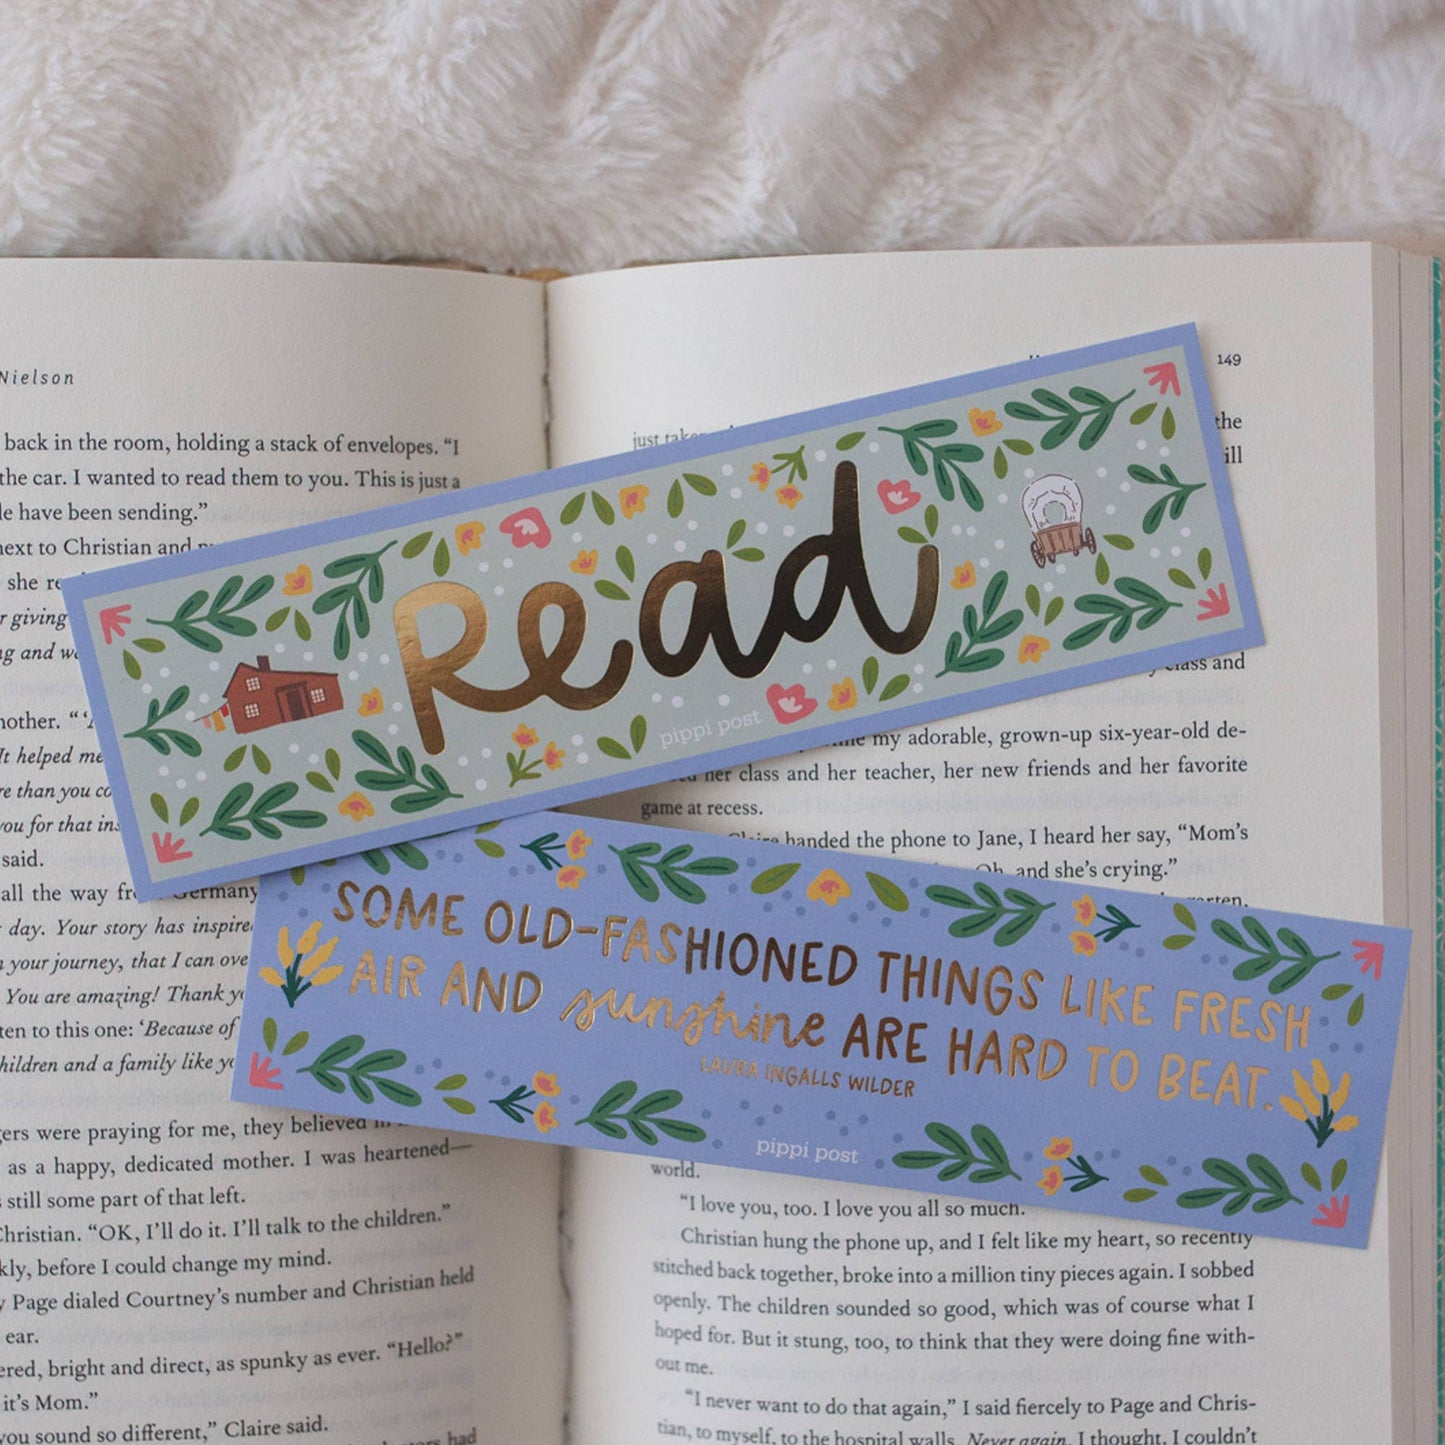 Nielson
back in the room, holding a stack of envelopes. “I
the car. I wanted to read them to you. This is just a
le have been sending.”
next to Christian and
she
giving
and
mother. “
It helped me
re than you
you for that
said.
all the way Germany
day. Your story has
your journey, that I can
You are amazing! Thank
ten to this one: ‘Because of
hildren and a family like
gers were praying for me, they believed
as a happy, dedicated mother. I was heartened—
still some part of that left.
Christian. “OK, I’ll do it. I’ll talk to the children.”
kly, before I could change my mind.
Page dialed Courtney’s number and Christian held
ear.
ered, bright and direct, as spunky as ever. “Hello?”
it’s Mom.”
you sound so different,” Claire said.
had
149
just
the
ill
class and
my adorable, grown-up six-year-old de-
her class and her teacher, her new friends and her favorite
game at recess.
handed the phone to Jane, I heard her say, “Mom’s
and she’s crying.”
world.
“I love you, too. I love you all so much.
Christian hung the phone up, and I felt like my heart, so recently
stitched back together, broke into a million tiny pieces again. I sobbed
openly. The children sounded so good, which was of course what I
hoped for. But it stung, too, to think that they were doing fine with-
out me.
“I never want to do that again,” I said fiercely to Page and Chris-
tian, to myself, to the hospital walls. Never again, I thought. I couldn’t
Read
pippi post
SOME OLD-FASHIONED THINGS LIKE FRESH
AIR AND sunshine ARE HARD TO BEAT.
LAURA INGALLS WILDER
pippi post